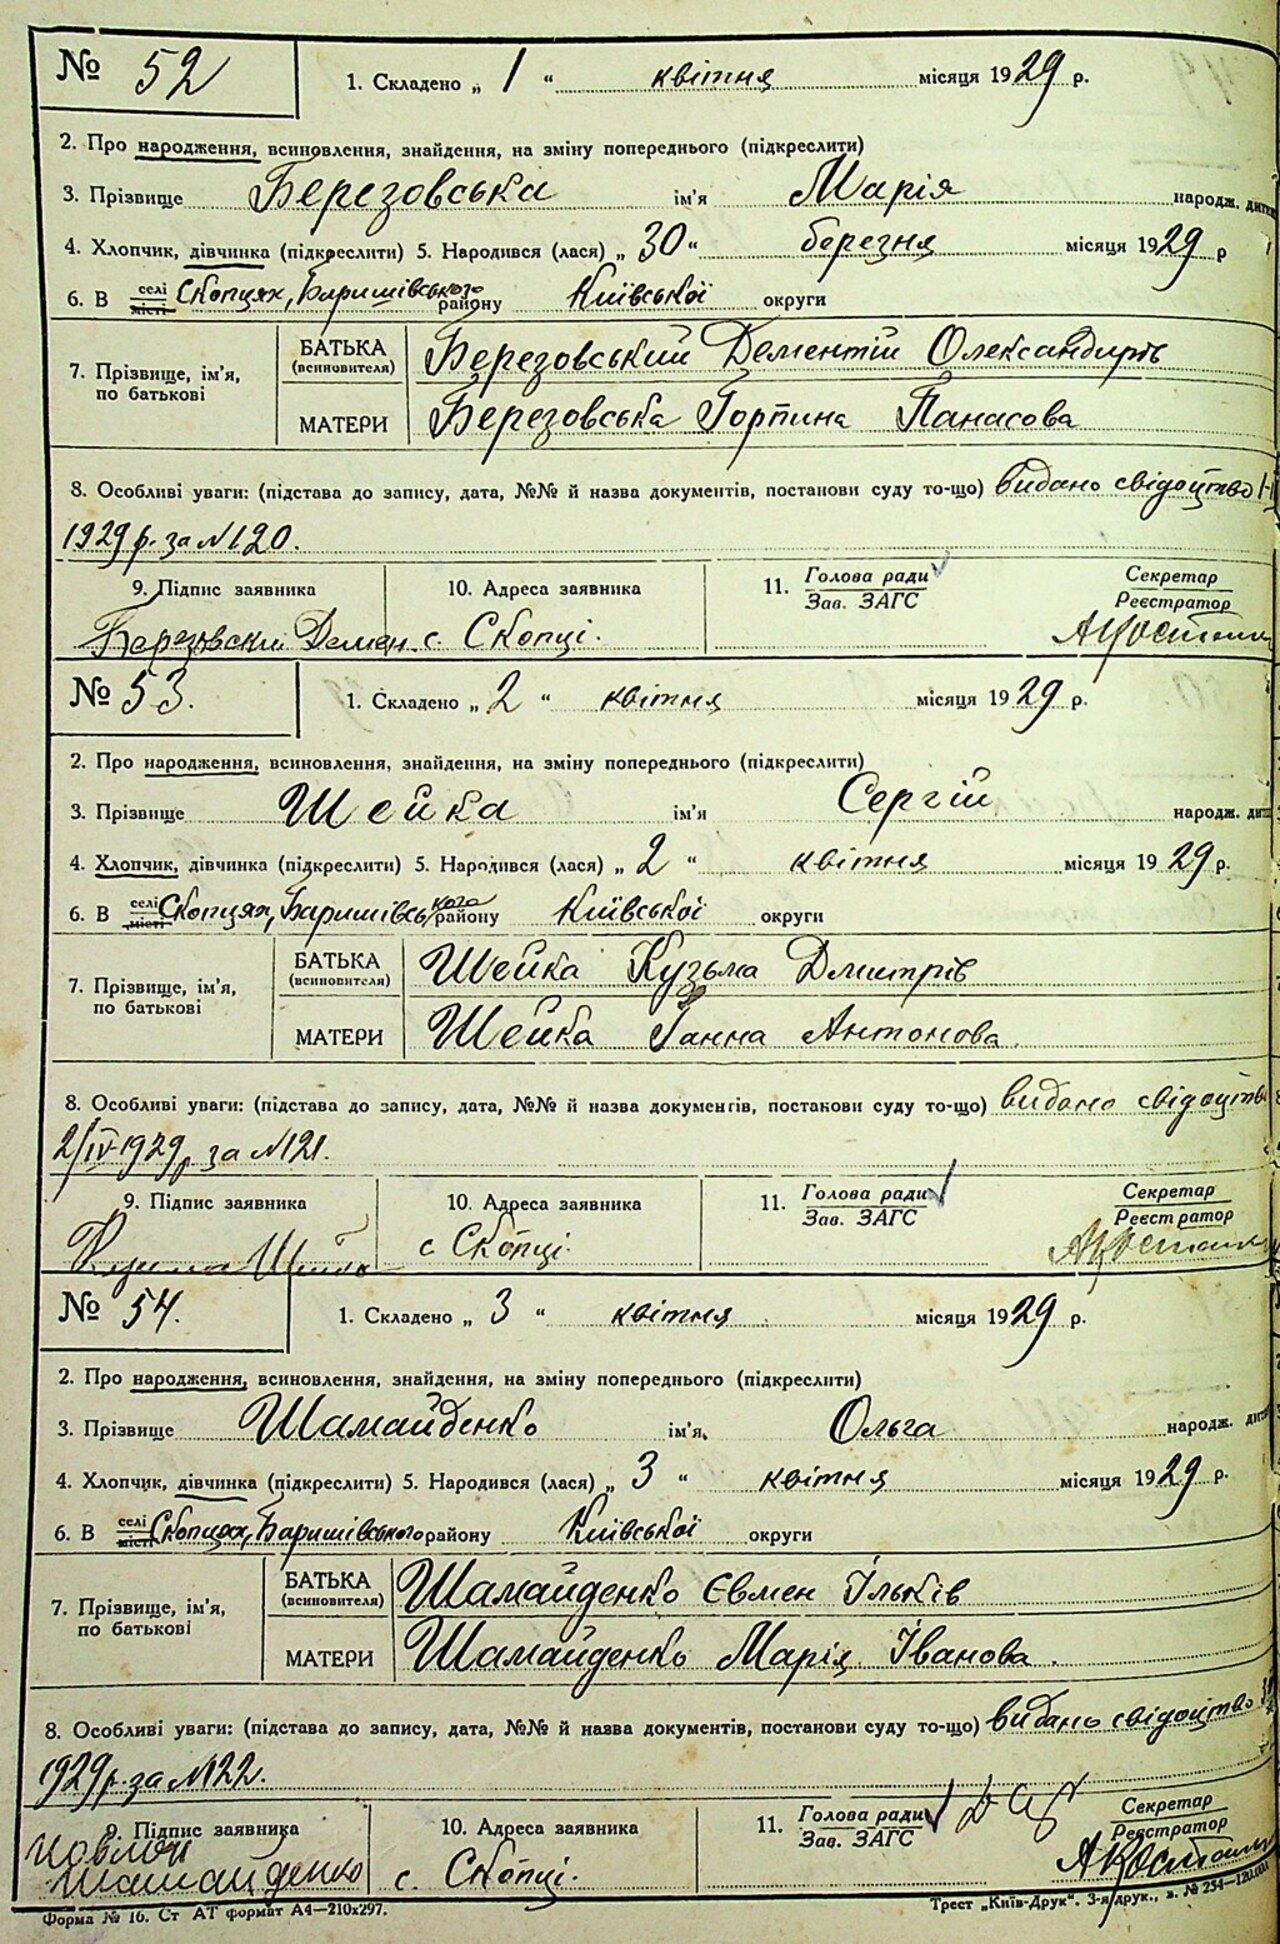 № 52
1. Складено „ 1 “ квітня місяця 1929 р.
2. Про народження, всиновлення, знайдення, на зміну попереднього (підкреслити)
3. Прізвище Березовська ім'я Марія народж. дитин
4. Хлопчик, дівчинка (підкреслити) 5. Народився (лася) „ 30 “ березня місяця 1929 р
6. В селі місті Скопцях, Баришівського району Київської округи
7. Прізвище, ім'я, по батькові
БАТЬКА (всиновителя) Березовський Дементій Олександрів
МАТЕРИ Березовська Горпина Панасова
8. Особливі уваги: (підстава до запису, дата, №№ й назва документів, постанови суду то-що) видано свідоцтво
1929 р. за N 120.
9. Підпис заявника 10. Адреса заявника 11. Голова ради Зав. ЗАГС Секретар Реєстратор
Березовский Демен. с. Скопці.
№ 53.
1. Складено „ 2 “ квітня місяця 1929 р.
2. Про народження, всиновлення, знайдення, на зміну попереднього (підкреслити)
3. Прізвище Шейка ім'я Сергій народж. дитин
4. Хлопчик, дівчинка (підкреслити) 5. Народився (лася) „ 2 “ квітня місяця 1929 р.
6. В селі місті Скопцях, Баришівського району Київської округи
7. Прізвище, ім'я, по батькові
БАТЬКА (всиновителя) Шейка Кузьма Дмитрів
МАТЕРИ Шейка Ганна Антонова.
8. Особливі уваги: (підстава до запису, дата, №№ й назва документів, постанови суду то-що) видано свідоцтво
2/IV-1929 р за N 121.
9. Підпис заявника 10. Адреса заявника 11. Голова ради Зав. ЗАГС Секретар Реєстратор
с Скопці.
№ 54.
1. Складено „ 3 “ квітня місяця 1929 р.
2. Про народження, всиновлення, знайдення, на зміну попереднього (підкреслити)
3. Прізвище Шамайденко ім'я Ольга народж. дитин
4. Хлопчик, дівчинка (підкреслити) 5. Народився (лася) „ 3 “ квітня місяця 1929 р.
6. В селі місті Скопцях, Баришівського району Київської округи
7. Прізвище, ім'я, по батькові
БАТЬКА (всиновителя) Шамайденко Євмен Ільків
МАТЕРИ Шамайденко Марія Іванова.
8. Особливі уваги: (підстава до запису, дата, №№ й назва документів, постанови суду то-що) видано свідоцтво
1929 р. за N 122.
9. Підпис заявника 10. Адреса заявника 11. Голова ради Зав. ЗАГС Секретар Реєстратор
Шамайденко с. Скопці.
Форма № 16. Ст АТ формат А4—210х297. Трест „Київ-Друк“. 3-я друк., з. № 254—120.000